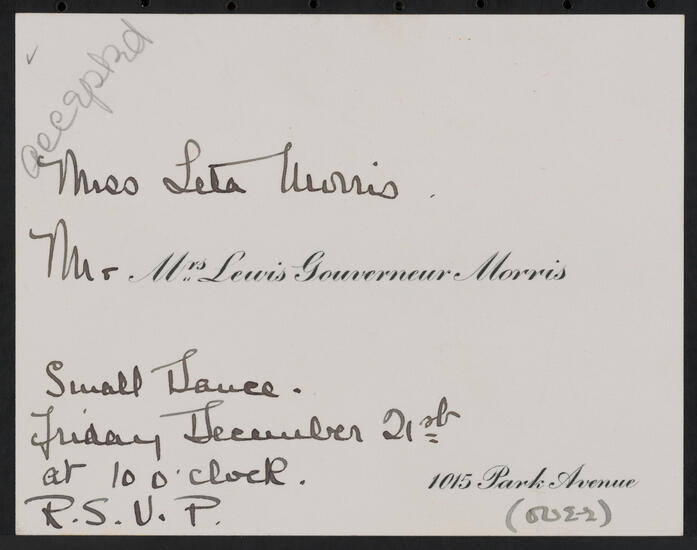 accepted
Miss Leta Morris.
Mr Mrs Lewis Gouverneur Morris
Small Dance.
Friday December 21st
at 10 o'clock.
R.S.V.P.
1015 Park Avenue
(over)